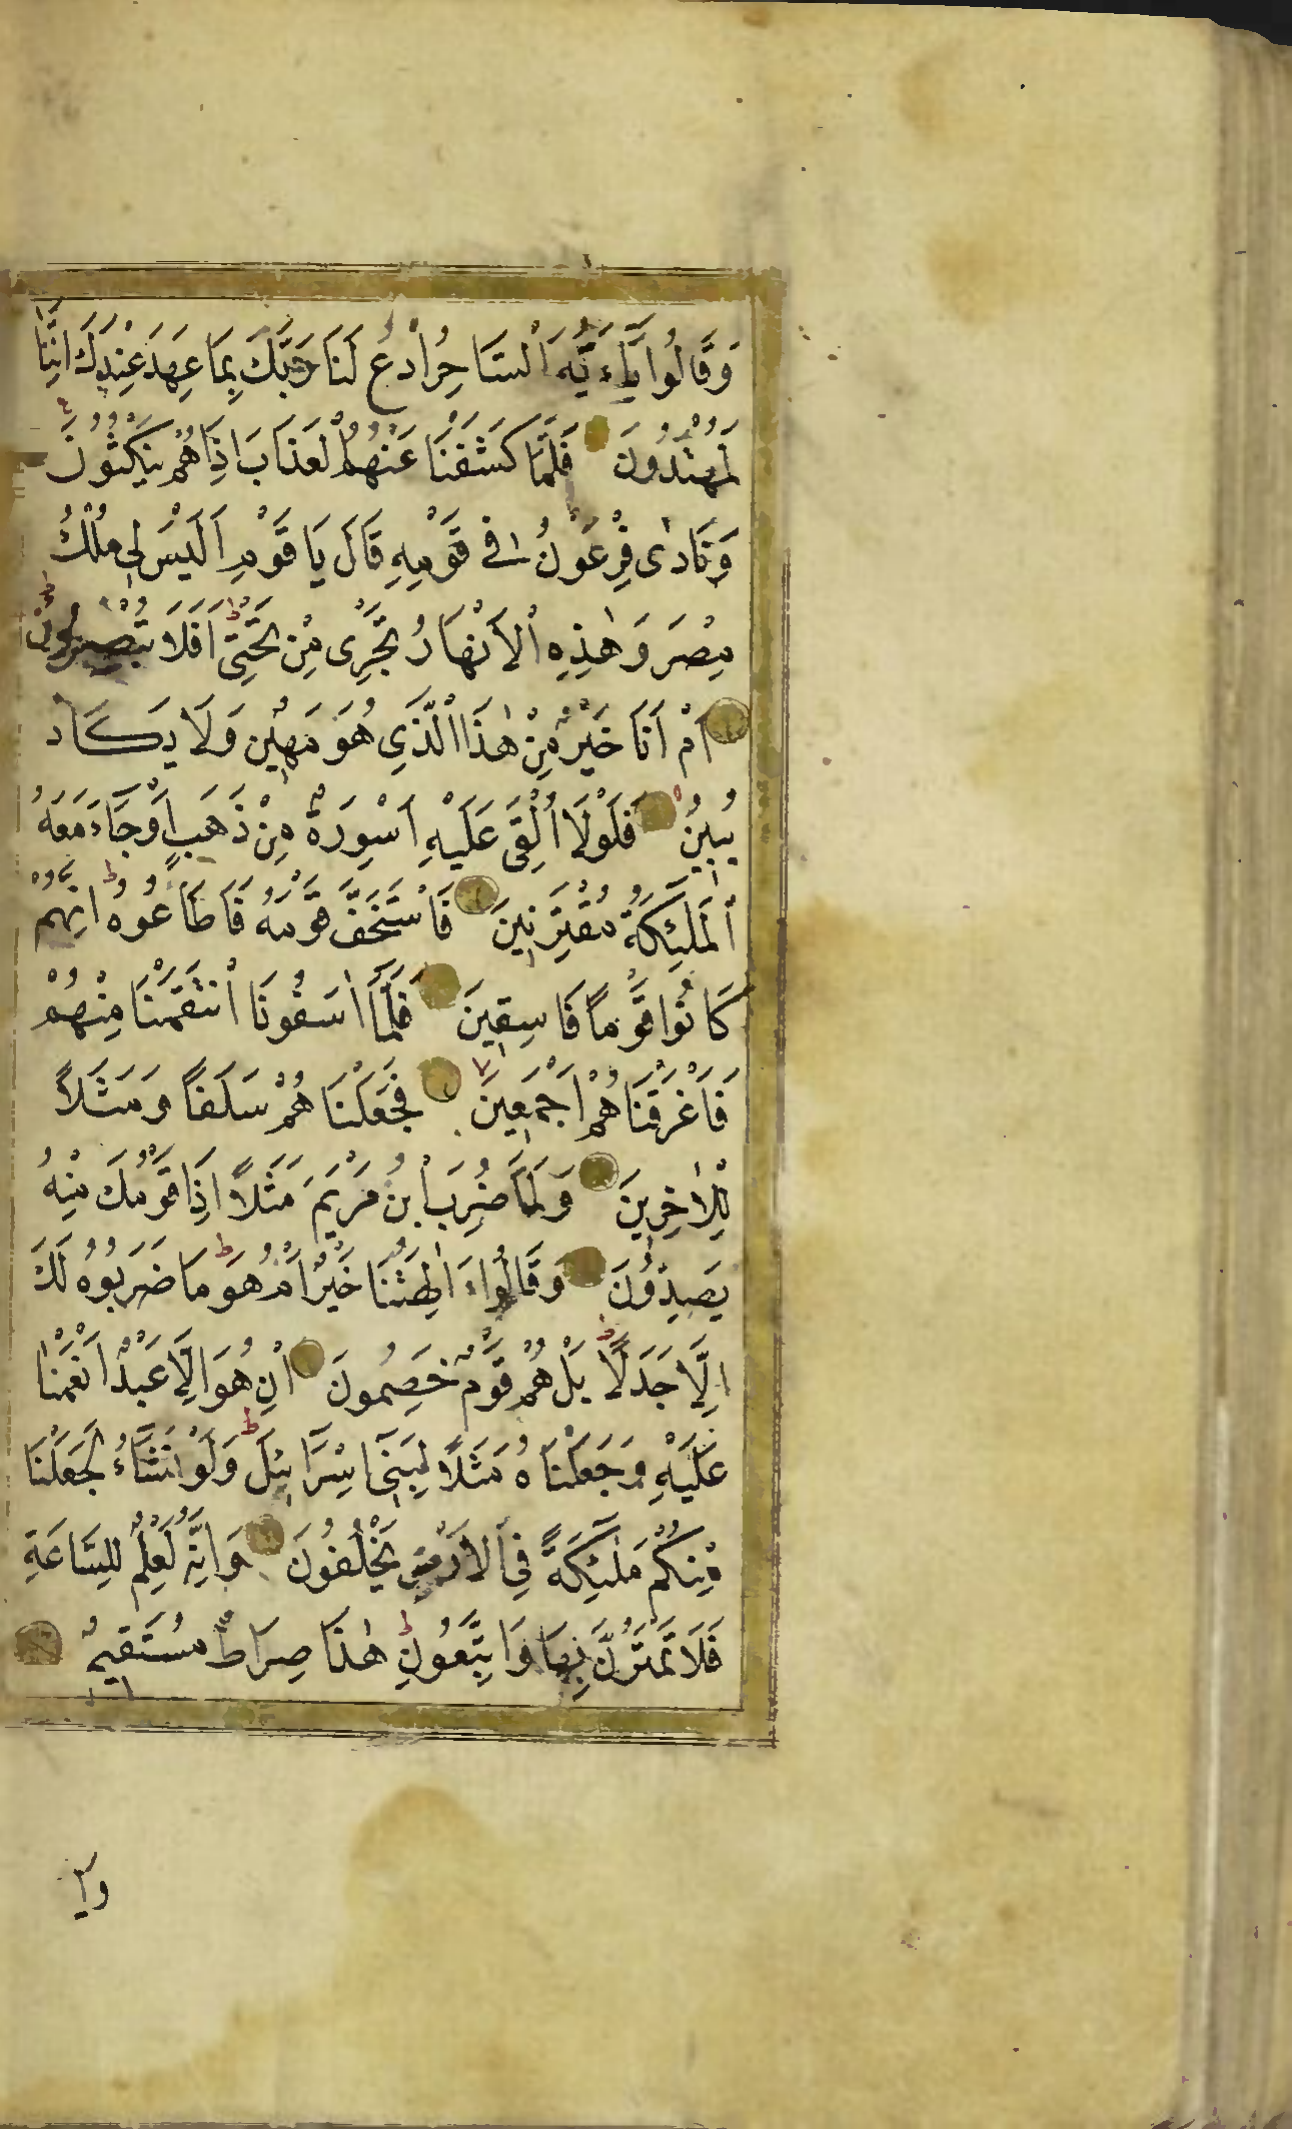 وَقَالُوا يَاءَيُّهَ السَّاحِرُ ادْعُ لَنَا رَبَّكَ بِمَا عَهِدَ عِنْدَكَ اِنَّنَا
لَمُهْتَدُونَ فَلَمَّا كَشَفْنَا عَنْهُمُ الْعَذَابَ اِذَا هُمْ يَنْكُثُونَ
وَنَادٰى فِرْعَوْنُ فِي قَوْمِهِ قَالَ يَا قَوْمِ اَلَيْسَ لِي مُلْكُ
مِصْرَ وَهٰذِهِ الْاَنْهَارُ تَجْرِى مِنْ تَحْتِى اَفَلَا تُبْصِرُونَ
اَمْ اَنَا خَيْرٌ مِنْ هٰذَا الَّذِي هُوَ مَهِينٌ وَلَا يَكَادُ
يُبِينُ فَلَوْلَا اُلْقِيَ عَلَيْهِ اَسْوِرَةٌ مِنْ ذَهَبٍ اَوْ جَاءَ مَعَهُ
الْمَلٰئِكَةُ مُقْتَرِنِينَ فَاسْتَخَفَّ قَوْمَهُ فَاَطَاعُوهُ اِنَّهُمْ
كَانُوا قَوْمًا فَاسِقِينَ فَلَمَّا اٰسَفُونَا انْتَقَمْنَا مِنْهُمْ
فَاَغْرَقْنَاهُمْ اَجْمَعِينَ فَجَعَلْنَاهُمْ سَلَفًا وَمَثَلًا
لِلْاٰخِرِينَ وَلَمَّا ضُرِبَ ابْنُ مَرْيَمَ مَثَلًا اِذَا قَوْمُكَ مِنْهُ
يَصِدُّونَ وَقَالُوا ءَاٰلِهَتُنَا خَيْرٌ اَمْ هُوَ مَا ضَرَبُوهُ لَكَ
اِلَّا جَدَلًا بَلْ هُمْ قَوْمٌ خَصِمُونَ اِنْ هُوَ اِلَّا عَبْدٌ اَنْعَمْنَا
عَلَيْهِ وَجَعَلْنَاهُ مَثَلًا لِبَنِي اِسْرَائِلَ وَلَوْ نَشَاءُ لَجَعَلْنَا
مِنْكُمْ مَلٰئِكَةً فِي الْاَرْضِ يَخْلُفُونَ وَاِنَّهُ لَعِلْمٌ لِلسَّاعَةِ
فَلَا تَمْتَرُنَّ بِهَا وَاتَّبِعُونِ هٰذَا صِرَاطٌ مُسْتَقِيمٌ
وَلَا